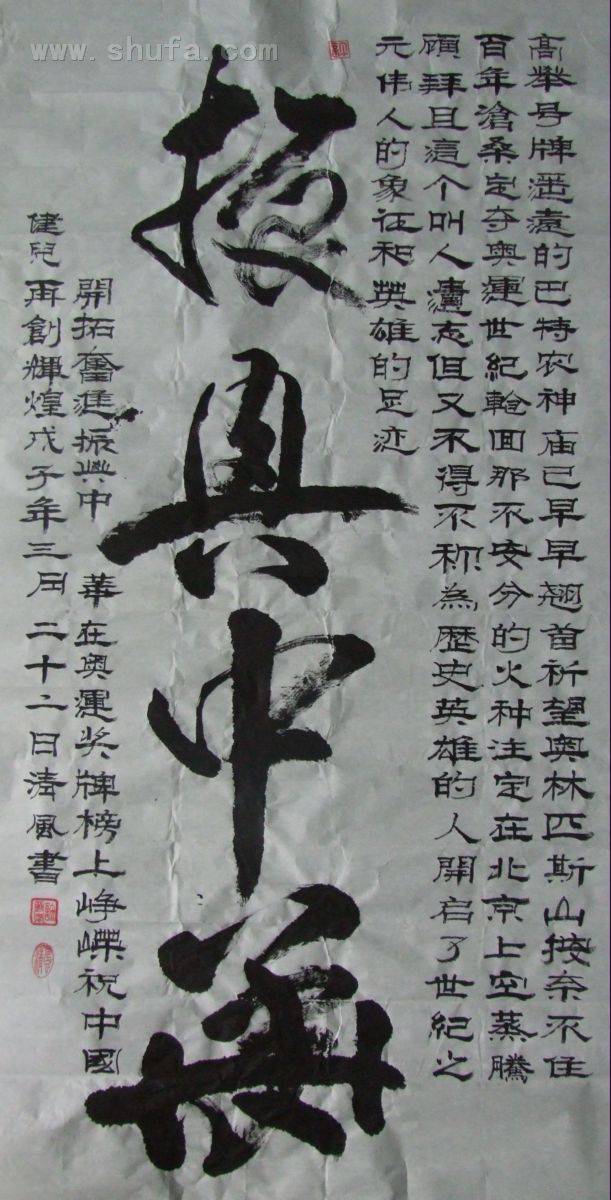 www.shufa.com
高舉号牌遥遠的巴特农神庙已早早翘首祈望奥林匹斯山按奈不住
百年滄桑定夺奥運世紀輪回那不安分的火种注定在北京上空蒸騰
顾拜旦這个叫人但又不得不称為歷史英雄的人開启了世紀之
元伟人的象征和英雄的足迹
振興中華
開拓奮進振興中華在奥運奖牌榜上峥嶸祝中國
健兒再創輝煌戊子年三月二十二日清風書